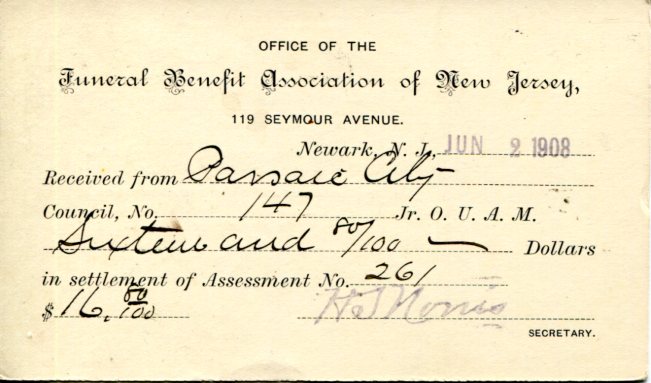 OFFICE OF THE
Funeral Benefit Association of New Jersey,
119 SEYMOUR AVENUE.
Newark, N. J., JUN 2 1908
Received from Passaic City
Council, No. 147 Jr. O. U. A. M.
Sixteen and 80/100 Dollars
in settlement of Assessment No. 261
$ 16. 80/100 H S Morris
SECRETARY.